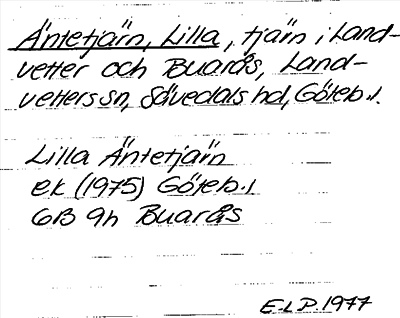 Äntetjärn, Lilla, tjärn i Land-
vetter och Buarås, Land-
vetters sn, Sävedals hd, Göteb. l.
Lilla Äntetjärn
ek (1975) Göteb. l
6B 9h Buarås
E-L P. 1977